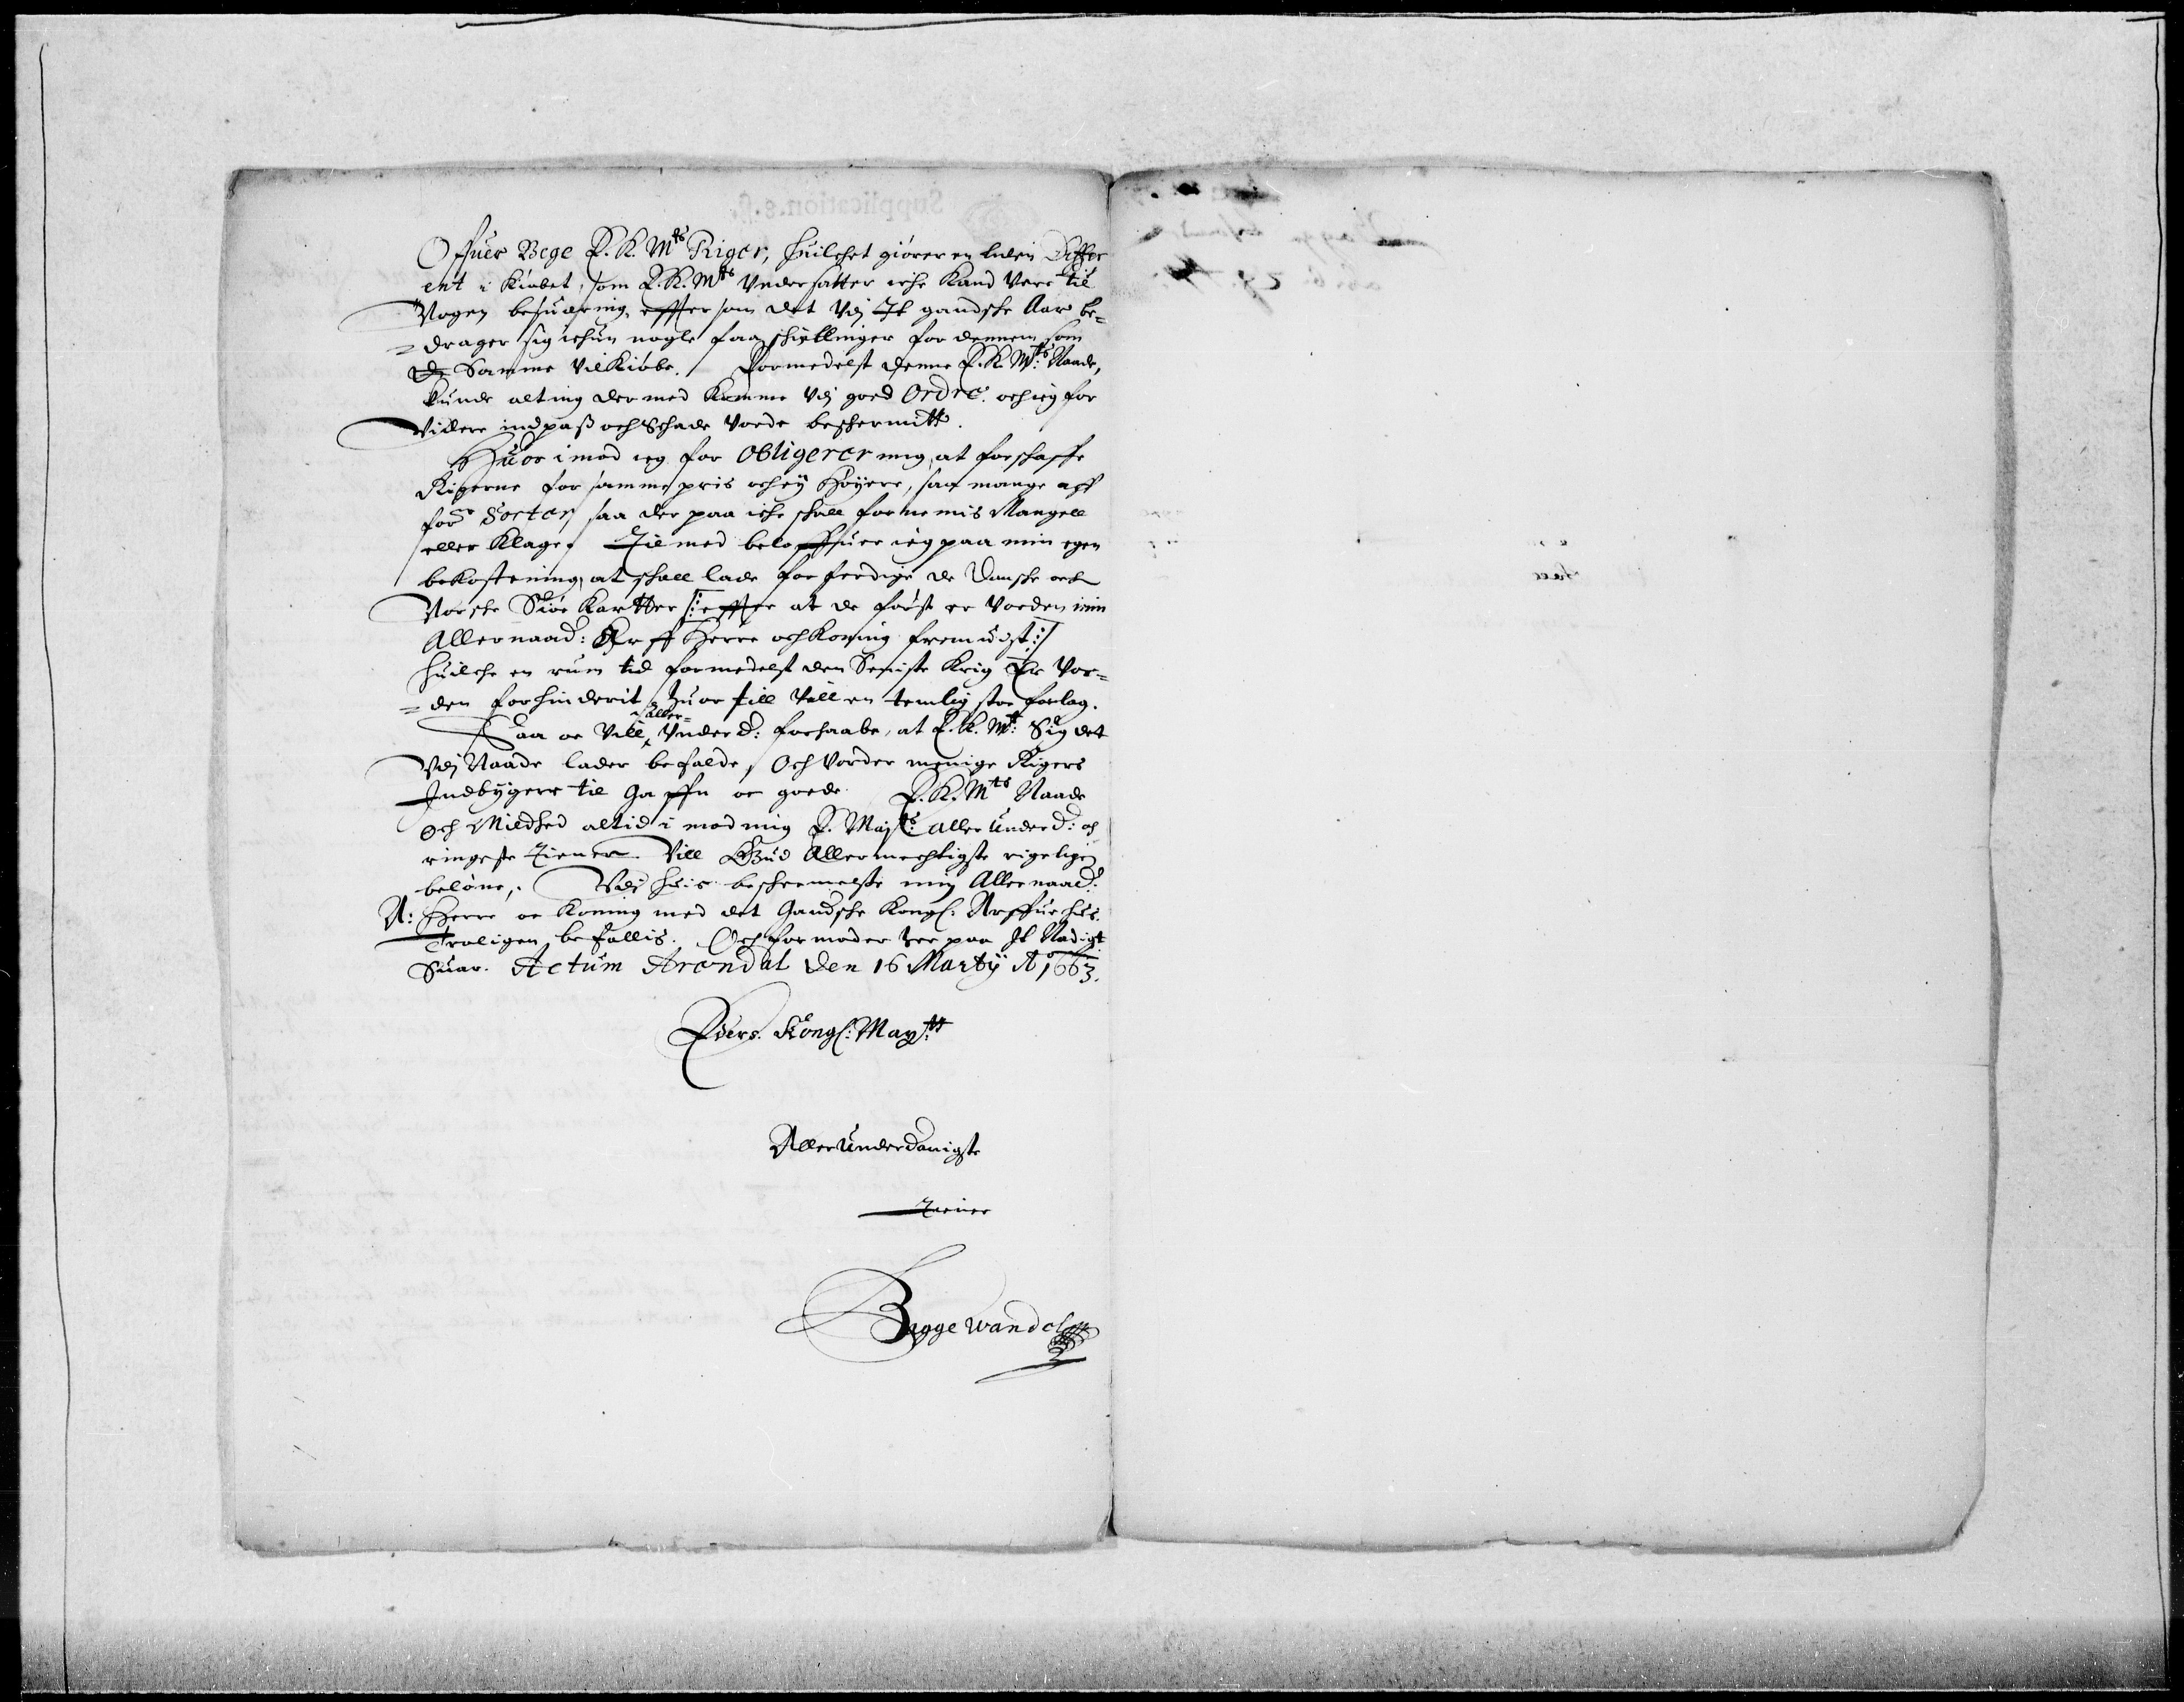 Offuer Bege E. K. Mts Riger, huilchet giörer en liden Differ
ent i Kiøbet, som E. K. Mts Vndersatter iche Kand Vere til
Nogen besuæring, effter som det Vdj It gandsche Aar be=
=drager sig ichun nogle faa schillinger for dennem som
de Samme Vil Kiøbe. Formedelst denne E. K. Mts: Naade,
kunde alting der med Komme Vdj goed Ordre. och ieg for
Videre indpass och Schade Vorde beschermitt.
Huor imod ieg for Obligerer mig, at forschaffe
Rigerne for samme pris och ey Høyere, saa mange aff
for: Sorter, saa der paa iche schall fornemmis Mangell
eller Klage. Til med beloffuer ieg paa min egen
bekostning, at schall lade forferdige de Dansche och
Norsche Siøe Kartter /: effter at de først er Vorden min
Allernaad: Arff Herre och Koning fremuist :/
huilche en rum tid formedelst den Seniste Krig Er Vor=
=den forhinderit, huor till Vill en temlig stor forlag.
Saa er Vill aller= Vnderd: forhaabe, at E. K. Mtt: Sig det
Vdj Naade lader befalde, Och Vorder menige Rigers
Indbygere til Gaffn oc goede. E. K. Mts Naade
och Mildhed altid i mod mig E. Majts: aller underd: och
ringeste tiener. Vill Gud Allermechtigste rigeligen
beløne,. Vdj huis beschermelse min Allernaad:
A: Herre oc Koning med det Gandsche Kongl: Arffue hus
Troligen befallis. Och formoder her paa It Nadigt
Suar. Actum Arendal den 16 Marty Ao 1663.
Eders Kongl: Maytt:
Allerunderdanigste
Tiener
Bagge Wandel